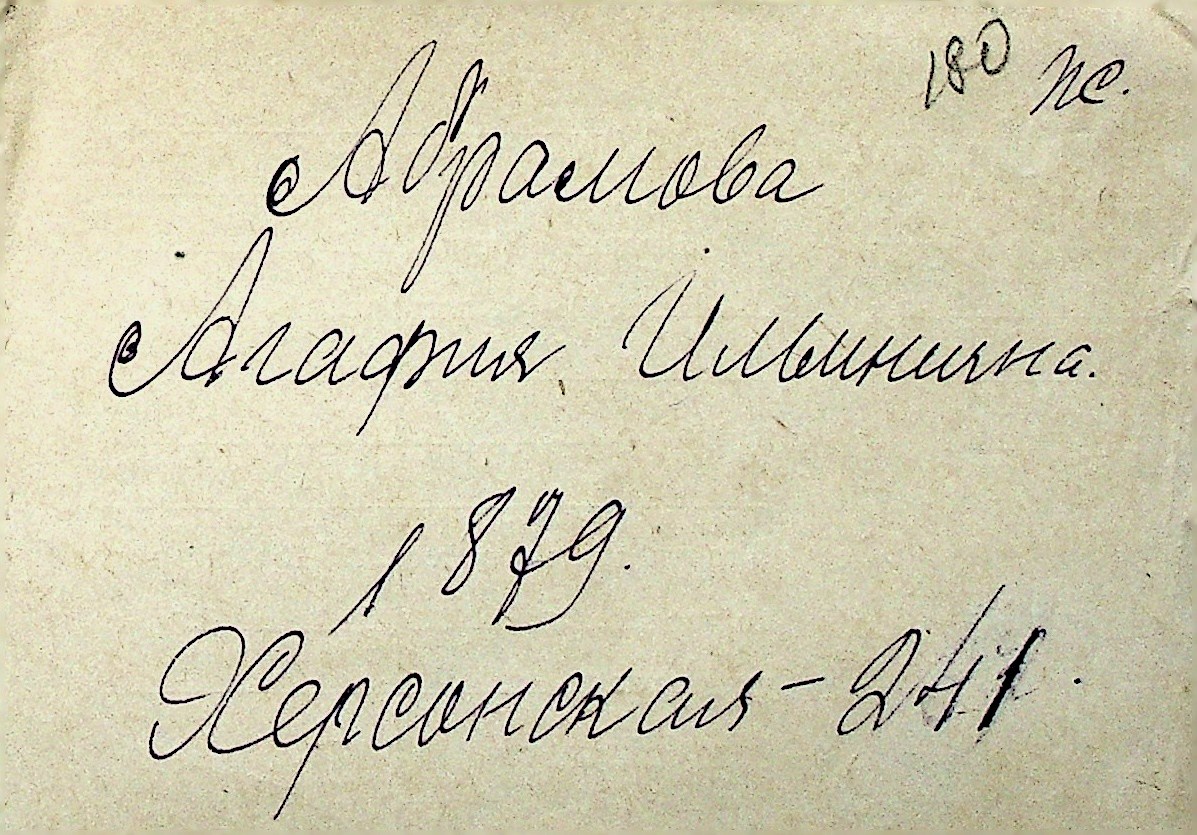 180 пс.
Абрамова
Агафия Ильинична.
1879.
Херсонская - 241.